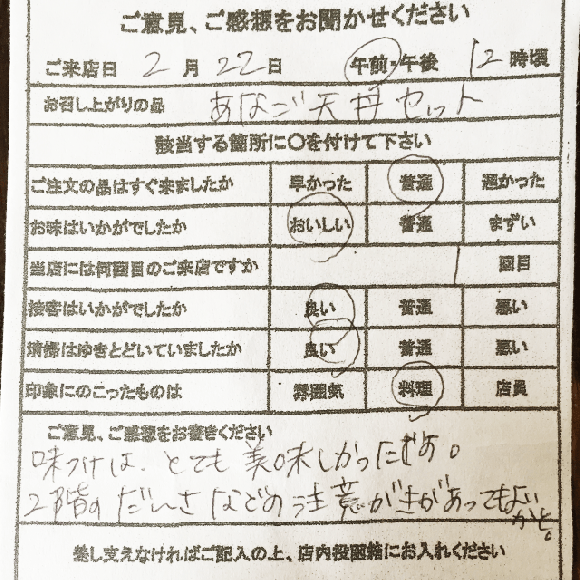 ご意見、ご感想をお聞かせください
ご来店日 2月22日 午前・午後 12時頃
お召し上がりの品 あなご天丼セット
該当する箇所に〇を付けて下さい
ご注文の品はすぐ来ましたか 早かった 普通 遅かった
お味はいかがでしたか おいしい 普通 まずい
当店には何回目のご来店ですか 1 回目
接客はいかがでしたか 良い 普通 悪い
清掃はゆきとどいていましたか 良い 普通 悪い
印象にのこったものは 雰囲気 料理 店員
ご意見、ご感想をお書きください
味つけは、とても美味しかった
2階の だんさ などの 注意があってもよいかと。
差し支えなければご記入の上、店内投函箱にお入れください